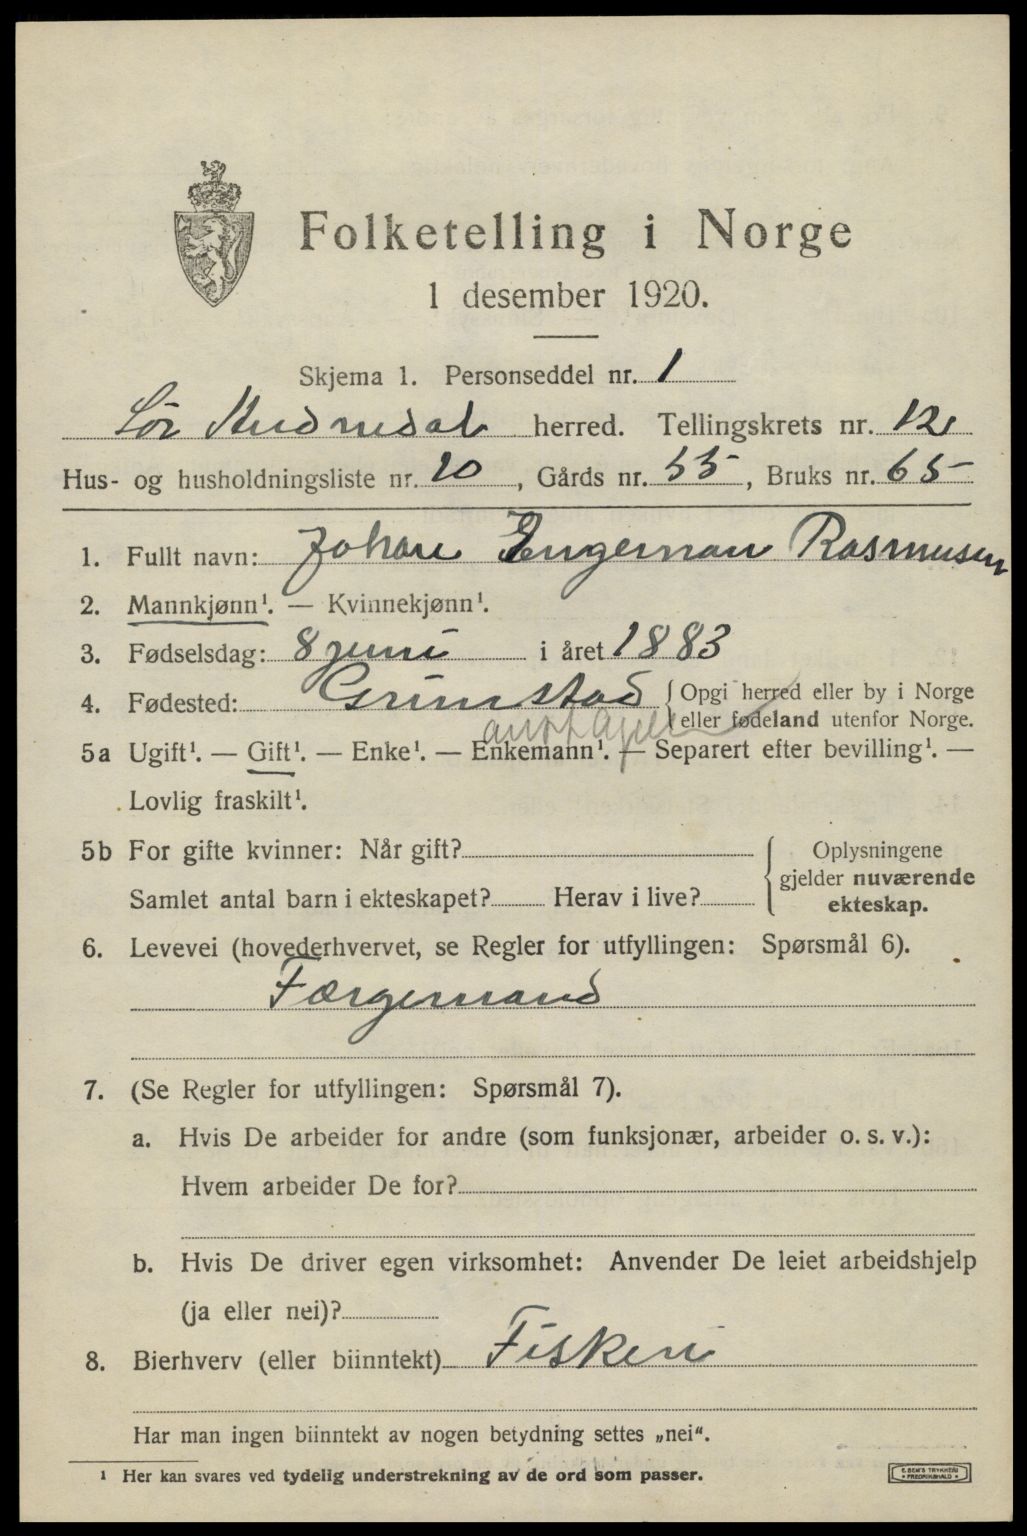 Folketelling i Norge
1 desember 1920.
Skjema 1. Personseddel nr. 1
Sör Audnedal herred. Tellingskrets nr. 12
Hus- og husholdningsliste nr. 20, Gårds nr. 55, Bruks nr. 65
1. Fullt navn: Johan Engeman Rasmusen
2. Mannkjønn¹. — Kvinnekjønn¹.
3. Fødselsdag: 8 juni i året 1883
4. Fødested: Grimstad {Opgi herred eller by i Norge
eller fødeland utenfor Norge.
5a Ugift¹. — Gift¹. — Enke¹. — Enkemann¹. — Separert efter bevilling¹. —
Lovlig fraskilt¹.
5b For gifte kvinner: Når gift?
Samlet antal barn i ekteskapet? Herav i live?
Oplysningene
gjelder nuværende
ekteskap.
6. Levevei (hovederhvervet, se Regler for utfyllingen: Spørsmål 6).
Færgemand
7. (Se Regler for utfyllingen: Spørsmål 7).
a. Hvis De arbeider for andre (som funksjonær, arbeider o. s. v.):
Hvem arbeider De for?
b. Hvis De driver egen virksomhet: Anvender De leiet arbeidshjelp
(ja eller nei)?
8. Bierhverv (eller biinntekt) Fiskeri
Har man ingen biinntekt av nogen betydning settes „nei“.
¹ Her kan svares ved tydelig understrekning av de ord som passer.